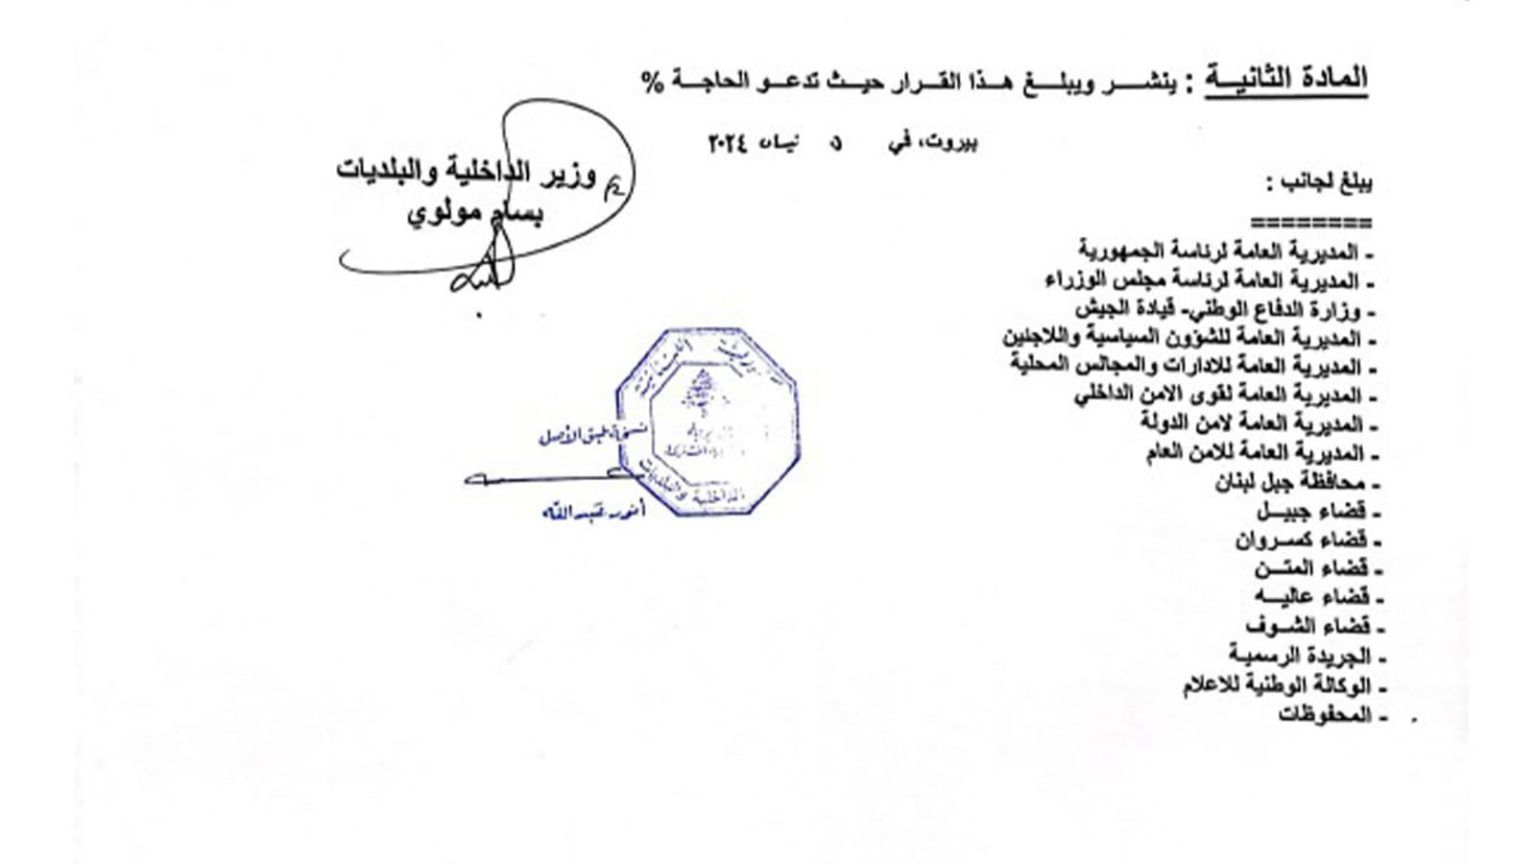 المادة الثانيـة : ينشـر ويبلـغ هـذا القـرار حيـث تدعـو الحاجـة %
بيروت، في ٥ نيسان ٢٠٢٤
وزير الداخلية والبلديات
بسام مولوي
يبلغ لجانب :
========
- المديرية العامة لرئاسة الجمهورية
- المديرية العامة لرئاسة مجلس الوزراء
- وزارة الدفاع الوطني- قيادة الجيش
- المديرية العامة للشؤون السياسية واللاجئين
- المديرية العامة للادارات والمجالس المحلية
- المديرية العامة لقوى الامن الداخلي
- المديرية العامة لامن الدولة
- المديرية العامة للامن العام
- محافظة جبل لبنان
- قضاء جبيـل
- قضاء كسـروان
- قضاء المتـن
- قضاء عاليـه
- قضاء الشـوف
- الجريدة الرسمية
- الوكالة الوطنية للاعلام
- المحفوظات
الجمهورية اللبنانية
الداخلية والبلديات
نسخة طبق الأصل
أنور عبدالله